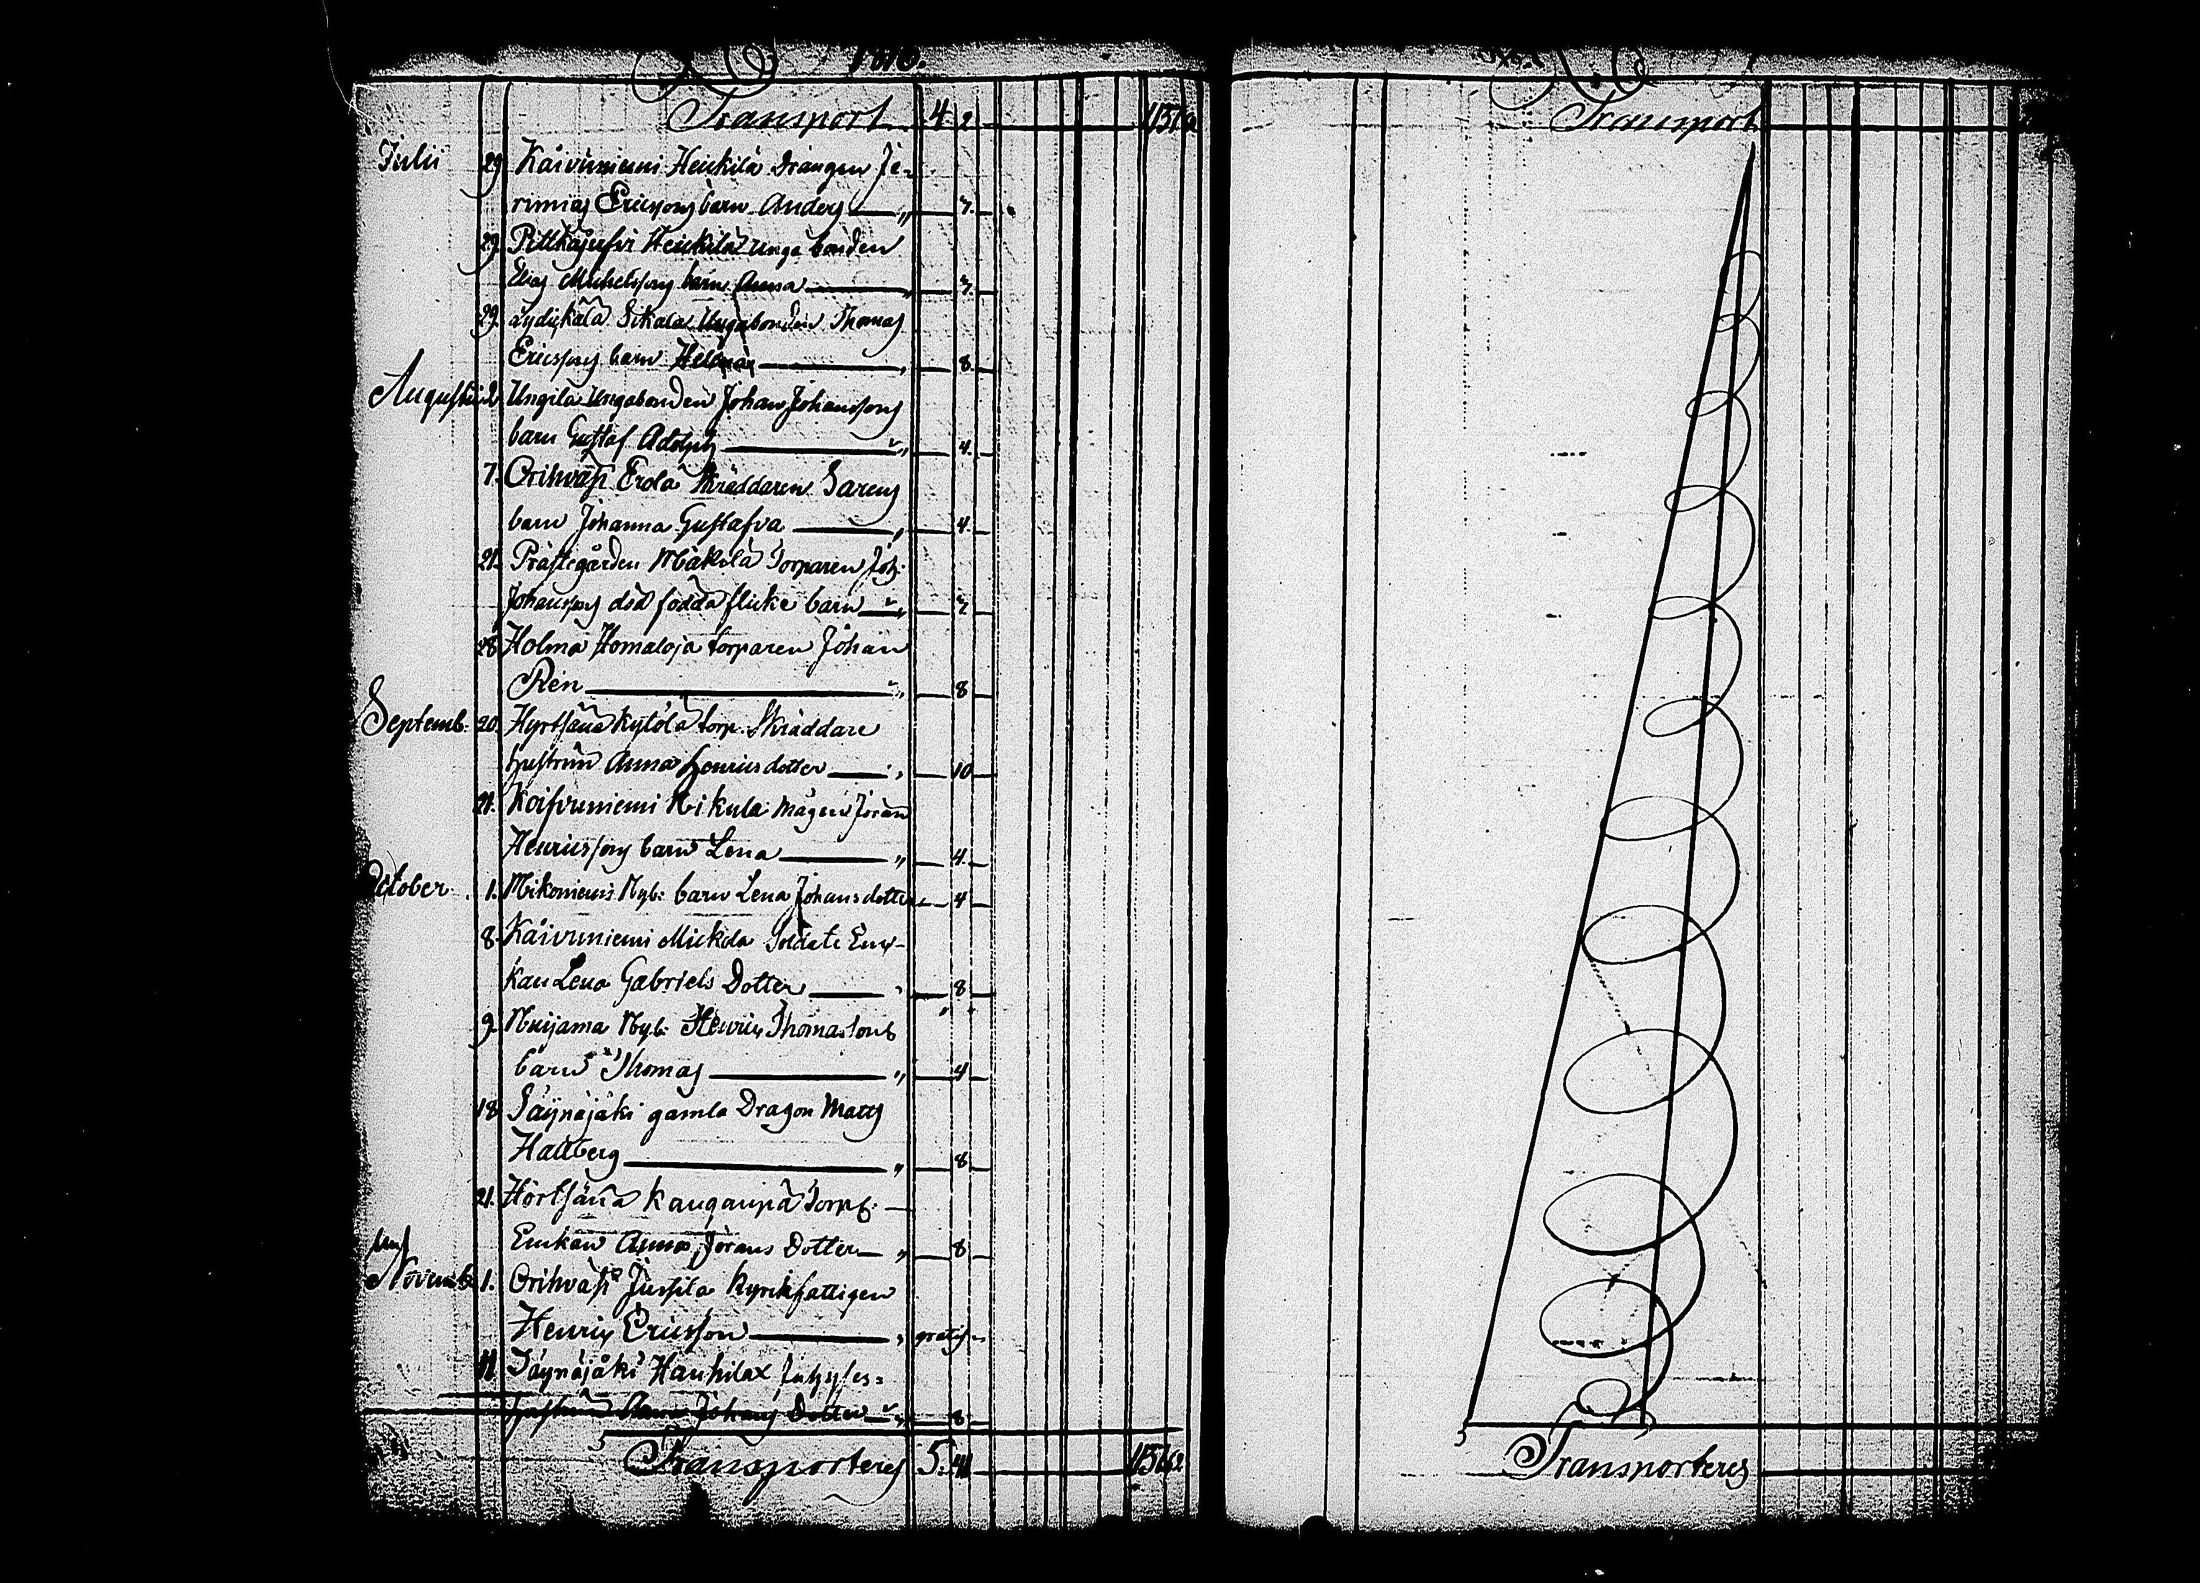 1816.
Transport 4 2
Julii 29 Kaivuniemi Heickilä Drängen Je-
rimias Ericssons barn Anders — " 7.
29. Pitkäjerfvi Heickilä Unga bonden
Elias Michelssons barn Anna — " 7.
29. Sikala Ungabonden Thomas
Ericssons barn — " 8.
Augusti 2 Ungila Ungabonden Johan Johanssons
barn Gustaf Adolph — " 4.
7. Orihväsi Erola Skräddaren Sarens
barn Johanna Gustafva — " 4.
21. Prästegården Mäkelä Torparen Joh:
Johanssons död födda flicke barn — " 7.
28 Holma Homaloja torparen Johan
Rén — " 8
Septemb. 20. Hyrtsänä Kytölä torp. Skräddare
hustrun Anna Henricsdotter — " 10
21. Koifvuniemi Nikula Mågen Jöran
Henricssons barn Lena — " 4.
October 1. Mikoniemi Nyb: barn Lena Johansdotter 4
8. Kaivuniemi Mickola Soldats Enc-
kan Lena Gabriels Dotter — " 8
9 Muijama Nyb: Henrics Thomassons
barn Thomas — " 4
18 Säynäjäki gamla Dragon Matts
Hallberg — " 8
21. Hörtsänä Kauganpä Torp:
Enkan Anna Jörans Dotter — " 8
Novemb. 1. Orihväsi Jussila Kyrckfattigen
Henric Ericsson — " gratis
11 Säynäjäki Haukilax
hustrun Anna Johans Dotter — " 8
Transporteres 5. 41
Transport
Transporteres